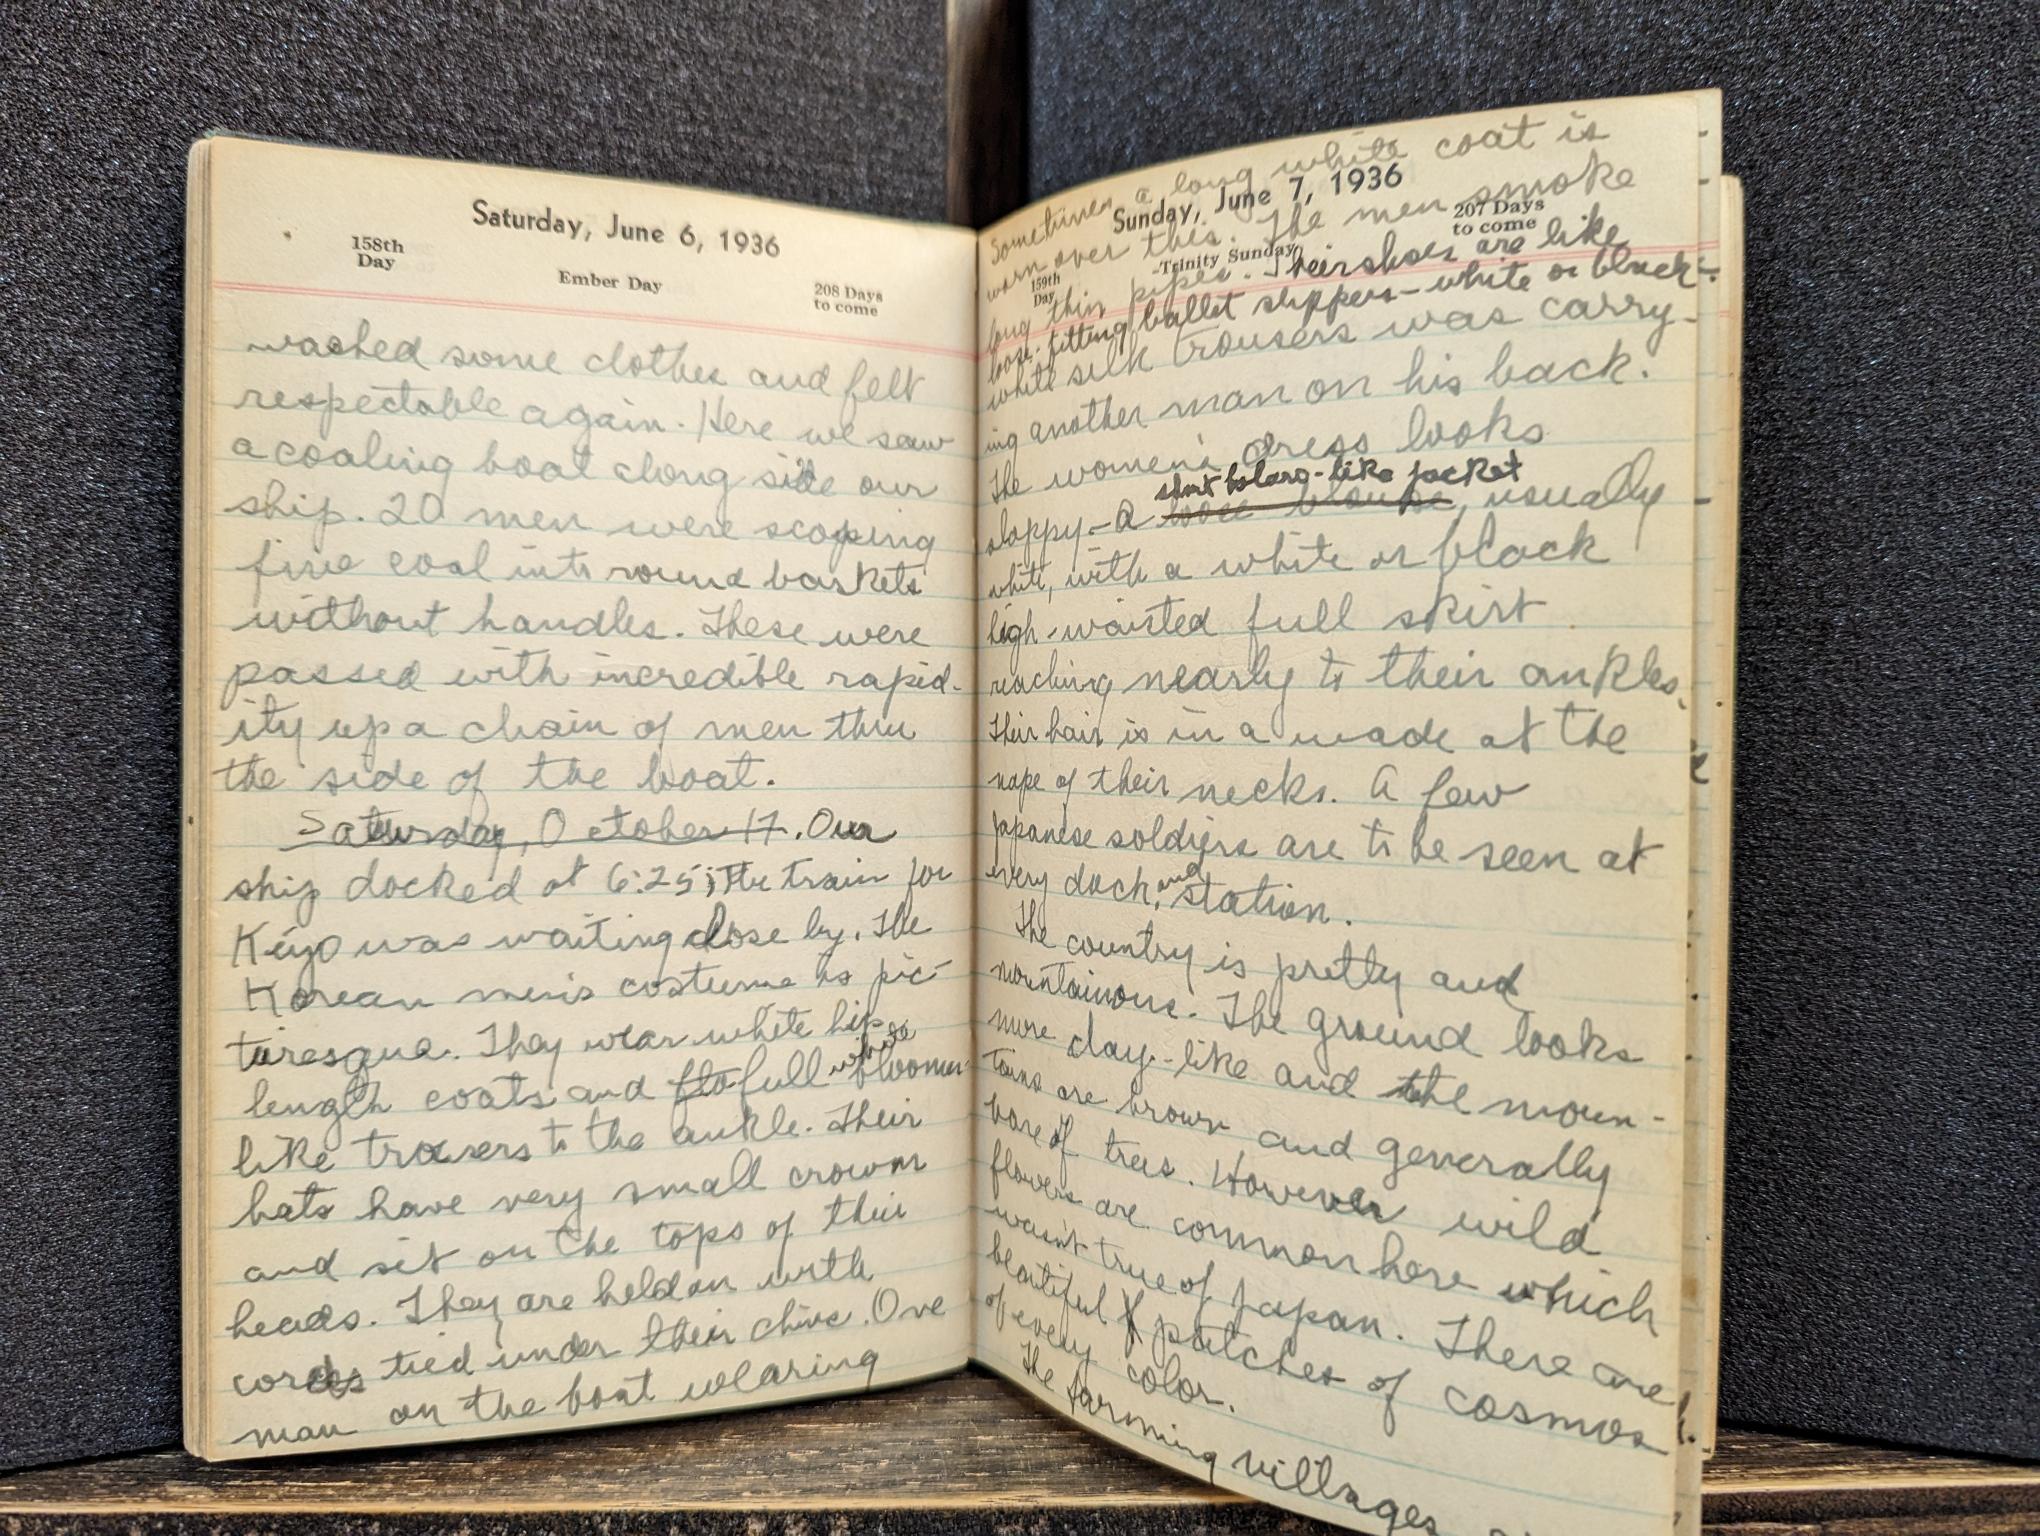 Saturday, June 6, 1936
158th
Day
Ember Day
208 Days
to come
washed some clothes and felt
respectable again. Here we saw
a coaling boat along side our
ship. 20 men were scoping
fine coal into round baskets
without handles. These were
passed with incredible rapid-
ity up a chain of men thru
the side of the boat.
Saturday, October 17. Our
ship docked at 6:25; The train for
Keijo was waiting close by. The
Korean men's costume is pic-
turesque. They wear white hip
length coats and flo full white bloomer-
like trousers to the ankle. Their
hats have very small crowns
and sit on the tops of their
heads. They are held on with
cords tied under their chins. One
man on the boat wearing
Sunday, June 7, 1936
159th
Day
-Trinity Sunday
207 Days
to come
Sometimes a long white coat is
worn over this. The men smoke
long thin pipes. Their shoes are like
loose-fitting ballet slippers - white or black.
white silk trousers was carry-
ing another man on his back.
The women's dress looks
sloppy - A loose blouse short bolero-like jacket, usually
white, with a white or black
high-waisted full skirt
reaching nearly to their ankles.
Their hair is in a made at the
nape of their necks. A few
Japanese soldiers are to be seen at
every dock, and station.
The country is pretty and
mountainous. The ground looks
more clay-like and the moun-
tains are brown and generally
bare of trees. However wild
flowers are common here which
wasn't true of Japan. There are
beautiful patches of cosmos
of every color.
The farming villages